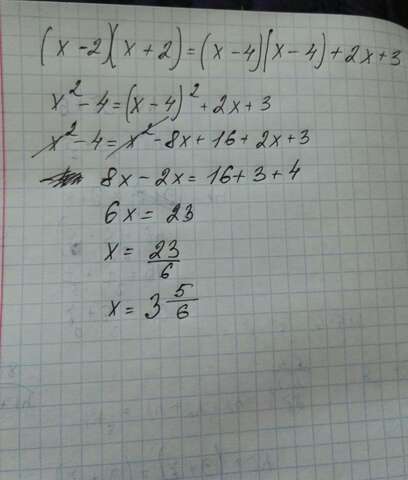 (x-2)(x+2)=(x-4)(x-4)+2x+3
x²-4=(x-4)²+2x+3
x²-4=x²-8x+16+2x+3
8x-2x=16+3+4
6x=23
x=23/6
x=3 5/6